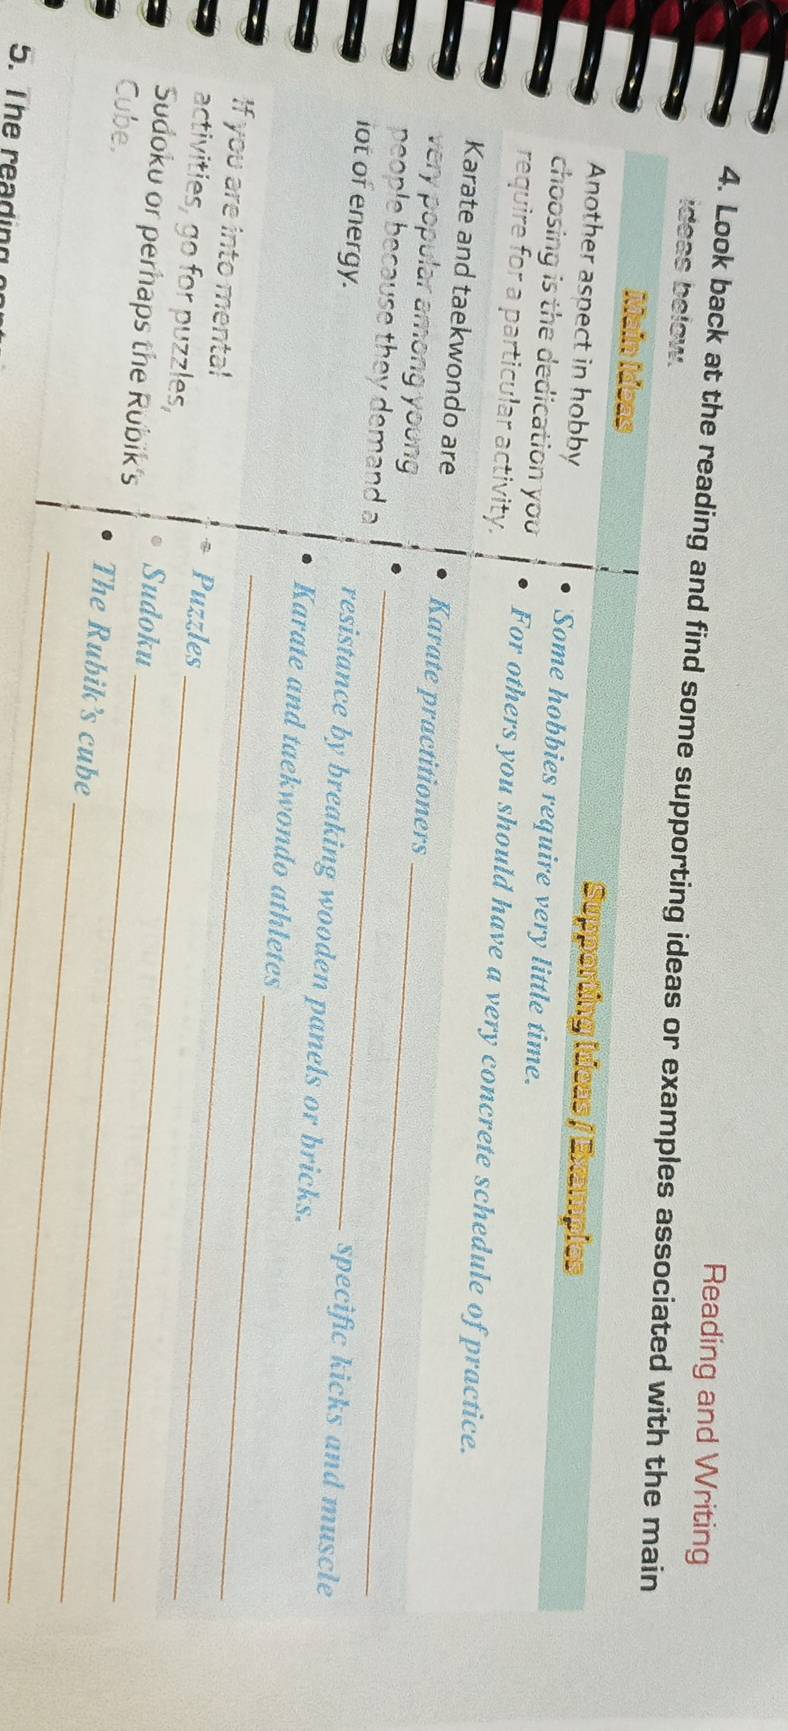 Reading and Writing
4. Look back at the reading and find some supporting ideas or examples associated with the main
ideas below.
Main Ideas
Supporting Ideas / Examples
Another aspect in hobby
choosing is the dedication you
require for a particular activity.
• Some hobbies require very little time.
• For others you should have a very concrete schedule of practice.
Karate and taekwondo are
very popular among young
people because they demand a
lot of energy.
• Karate practitioners
• specific kicks and muscle
resistance by breaking wooden panels or bricks.
• Karate and taekwondo athletes
If you are into mental
activities, go for puzzles,
Sudoku or perhaps the Rubik's
Cube.
• Puzzles
• Sudoku
• The Rubik's cube
5. The reading